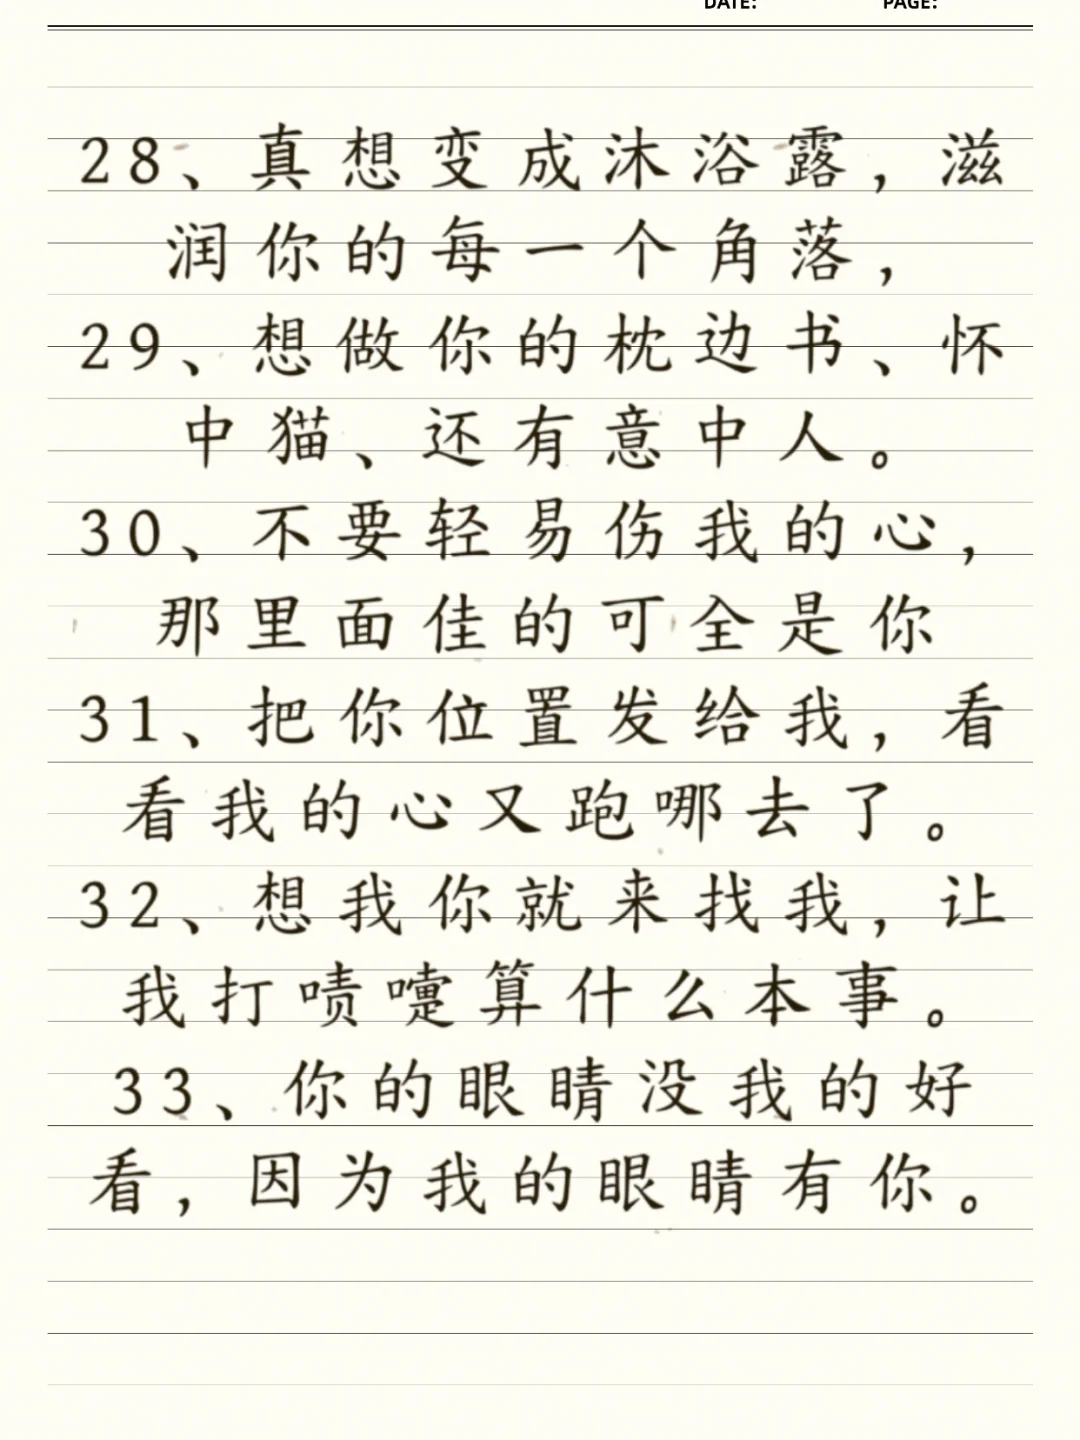 DATE: PAGE:
28、真想变成沐浴露，滋
润你的每一个角落，
29、想做你的枕边书、怀
中猫、还有意中人。
30、不要轻易伤我的心，
那里面佳的可全是你
31、把你位置发给我，看
看我的心又跑哪去了。
32、想我你就来找我，让
我打喷嚏算什么本事。
33、你的眼睛没我的好
看，因为我的眼睛有你。